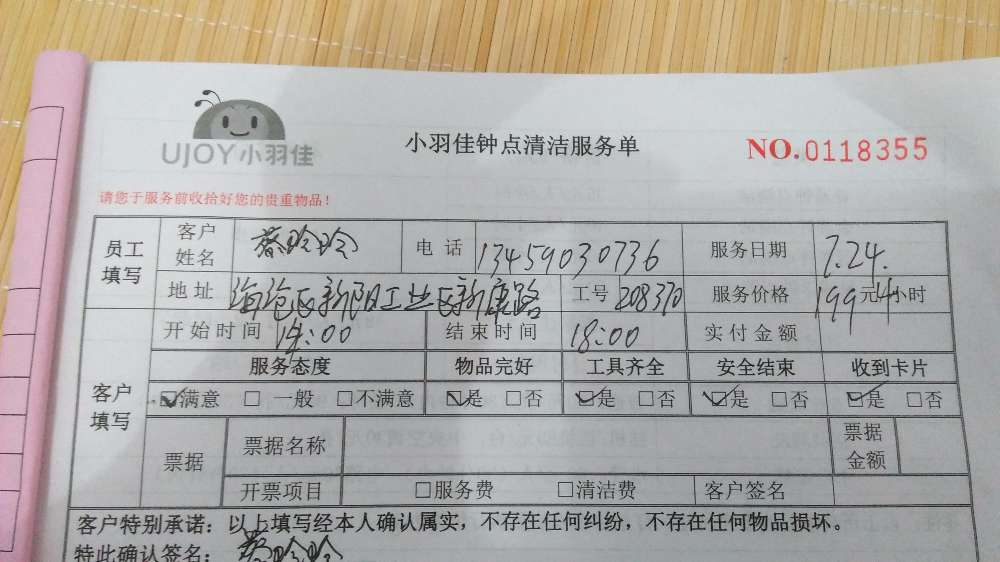 UJOY小羽佳
小羽佳钟点清洁服务单
NO.0118355
请您于服务前收拾好您的贵重物品！
员工填写 客户姓名 蔡玲玲 电话 13459030736 服务日期 7.24.
地址 海沧区新阳工业区新康路 工号 208370 服务价格 199元4小时
客户填写 开始时间 14:00 结束时间 18:00 实付金额
服务态度 物品完好 工具齐全 安全结束 收到卡片
☑满意 □一般 □不满意 ☑是 □否 ☑是 □否 ☑是 □否 ☑是 □否
票据 票据名称 票据金额
开票项目 □服务费 □清洁费 客户签名
客户特别承诺：以上填写经本人确认属实，不存在任何纠纷，不存在任何物品损坏。
特此确认签名：蔡玲玲